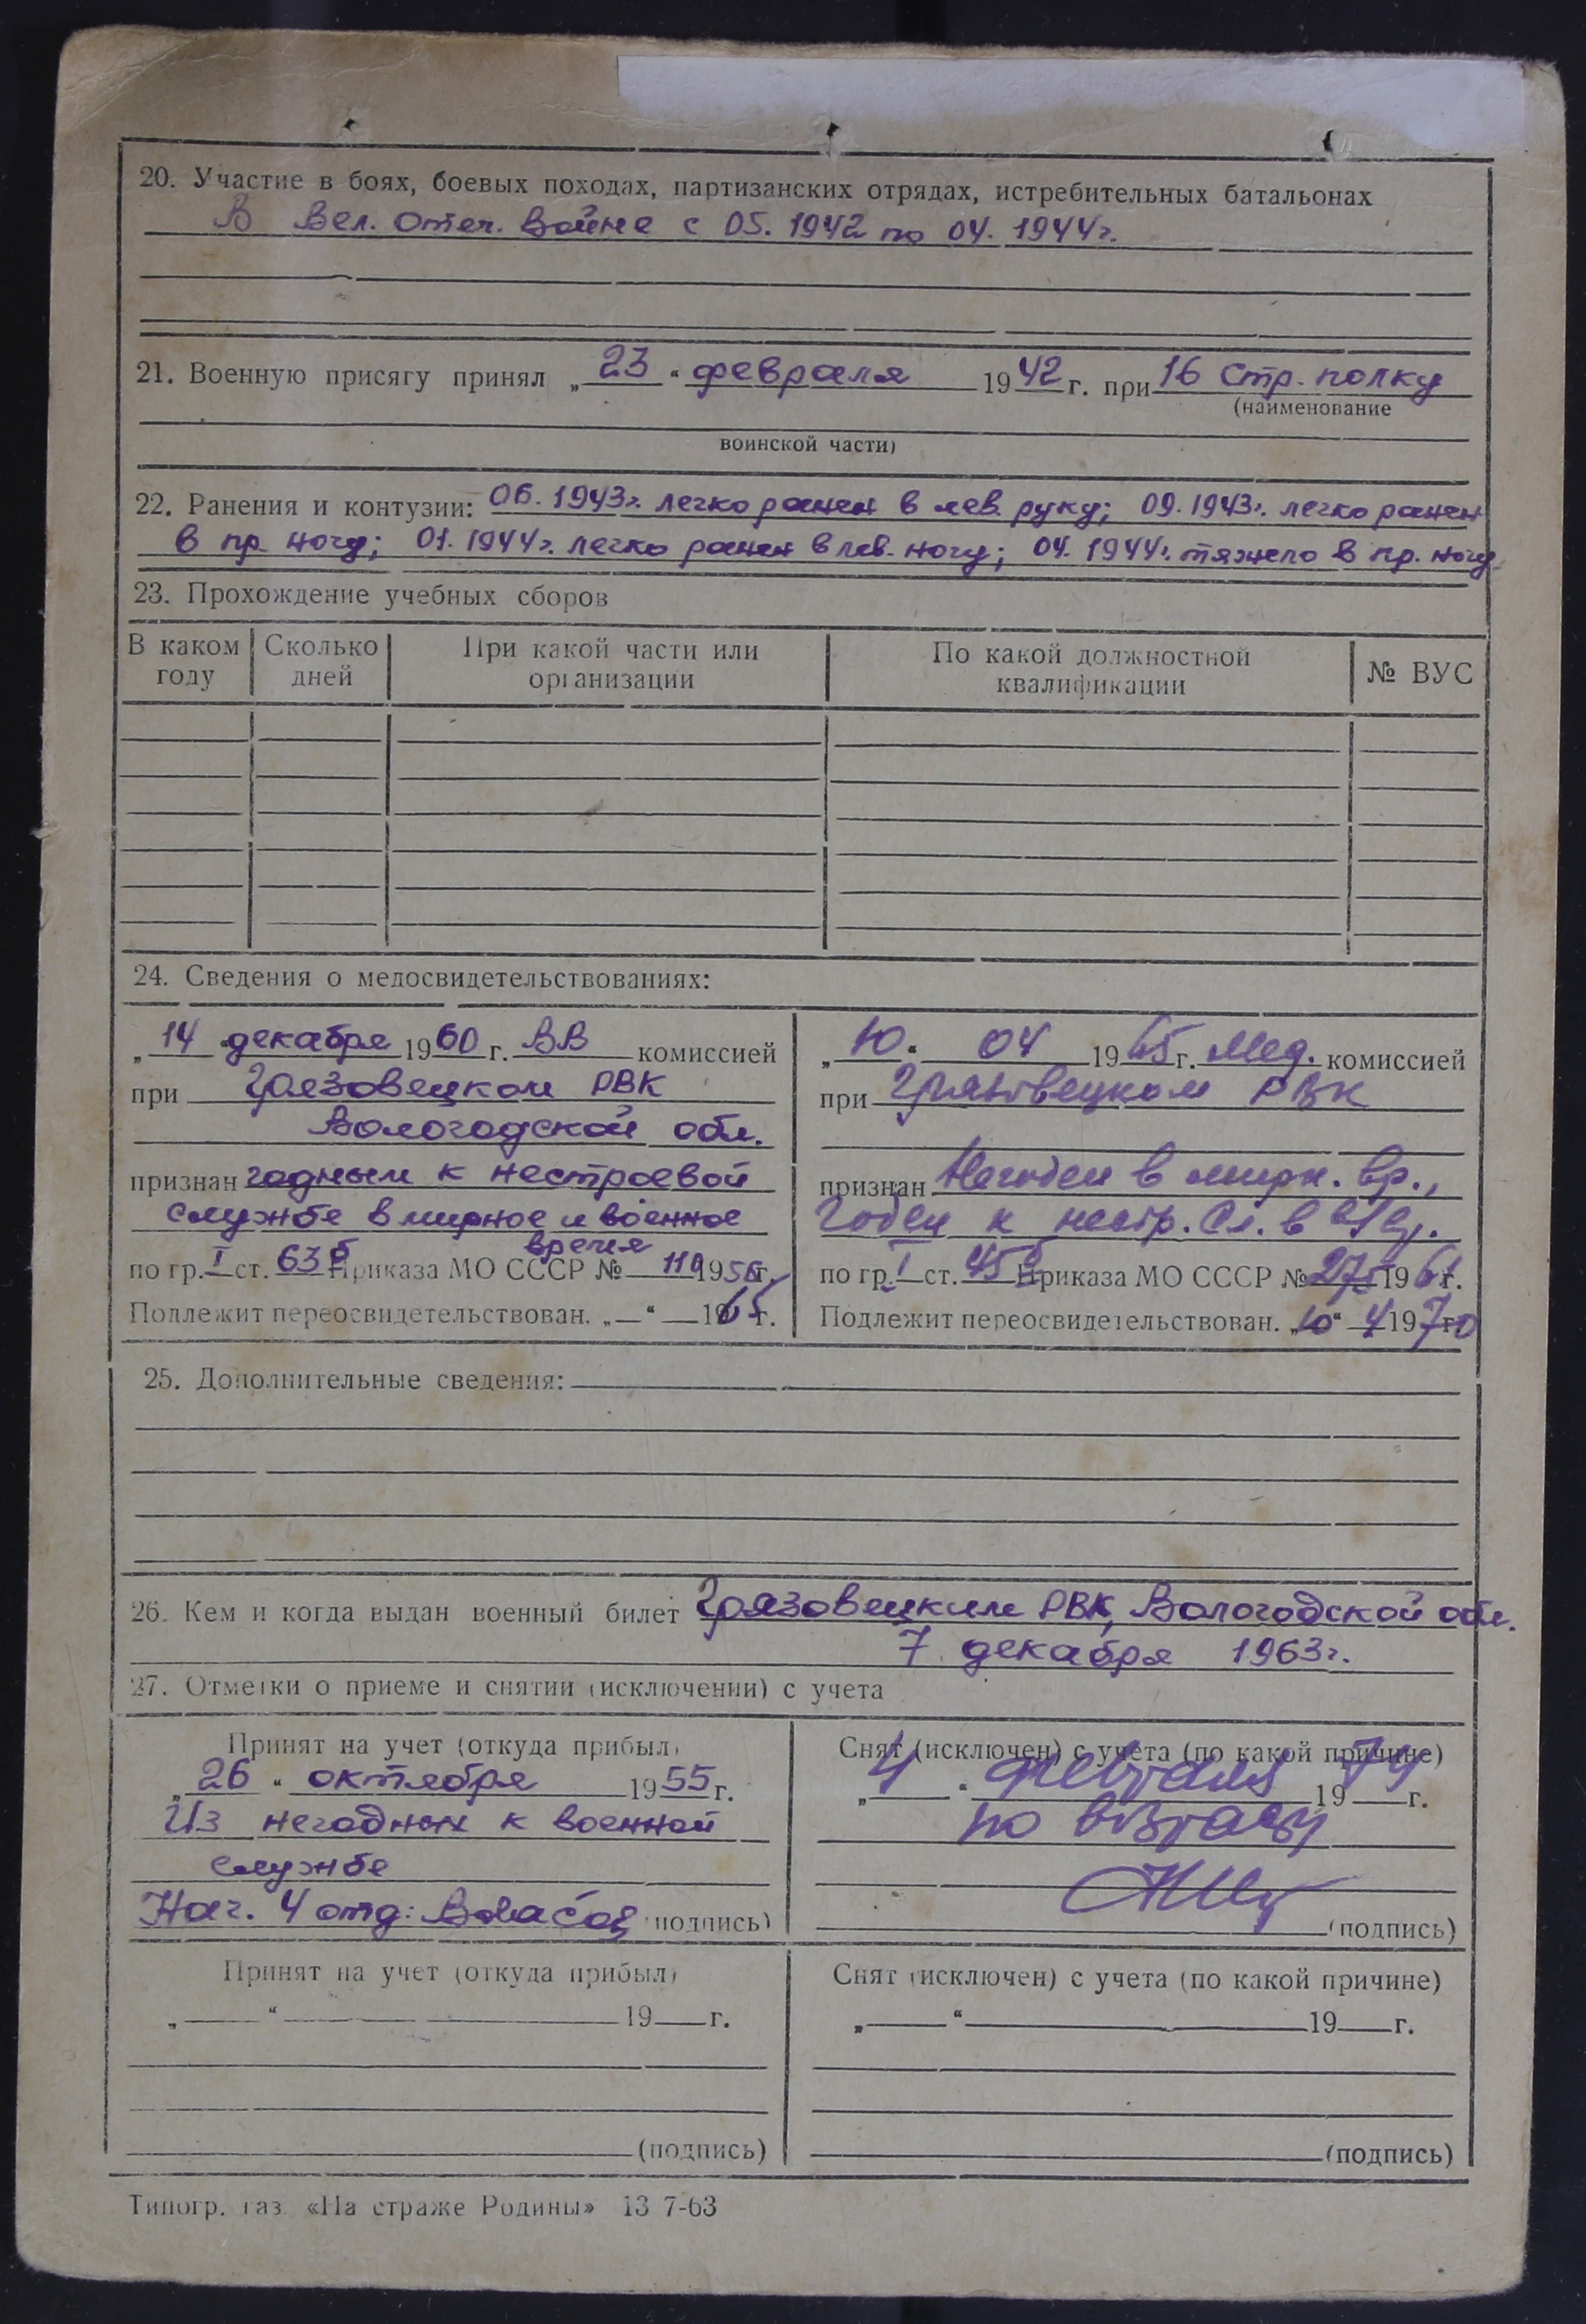 20. Участие в боях, боевых походах, партизанских отрядах, истребительных батальонах
В Вел. Отеч. Войне с 05. 1942 по 04. 1944г.
21. Военную присягу принял „23“ февраля 1942 г. при 16 Стр. полку
(наименование
воинской части)
22. Ранения и контузии: 06. 1943г. легко ранен в лев. руку; 09. 1943г. легко ранен
в пр. ногу; 01. 1944г. легко ранен в лев. ногу; 04. 1944г. тяжело в пр. ногу
23. Прохождение учебных сборов
В каком году Сколько дней При какой части или организации По какой должностной квалификации № ВУС
24. Сведения о медосвидетельствованиях:
„14“ декабря 1960 г. ВВ комиссией
при Грязовецком РВК
Вологодской обл.
признан годным к нестроевой
службе в мирное и военное
время
по гр. I ст. 63б Приказа МО СССР № 110 1956г.
Подлежит переосвидетельствован. „ “ 1965г.
„10“ 04 1965г. Мед. комиссией
при Грязовецком РВК
признан Негоден в мирн. вр.,
Годен к нестр. Сл. в
по гр. I ст. 45 Приказа МО СССР № 275 1961г.
Подлежит переосвидетельствован. „10“ 4 1970г.
25. Дополнительные сведения:
26. Кем и когда выдан военный билет Грязовецким РВК, Вологодской обл.
7 декабря 1963г.
27. Отметки о приеме и снятии (исключении) с учета
Принят на учет (откуда прибыл)
„26“ октября 1955г.
Из негодных к военной
службе
Нач. 4 отд: (подпись)
Снят (исключен) с учета (по какой причине)
„4“ февраля 1974 г.
по возрасту
(подпись)
Принят на учет (откуда прибыл)
„ “ 19 г.
(подпись)
Снят (исключен) с учета (по какой причине)
„ “ 19 г.
(подпись)
Типогр. газ. «На страже Родины» 13 7-63